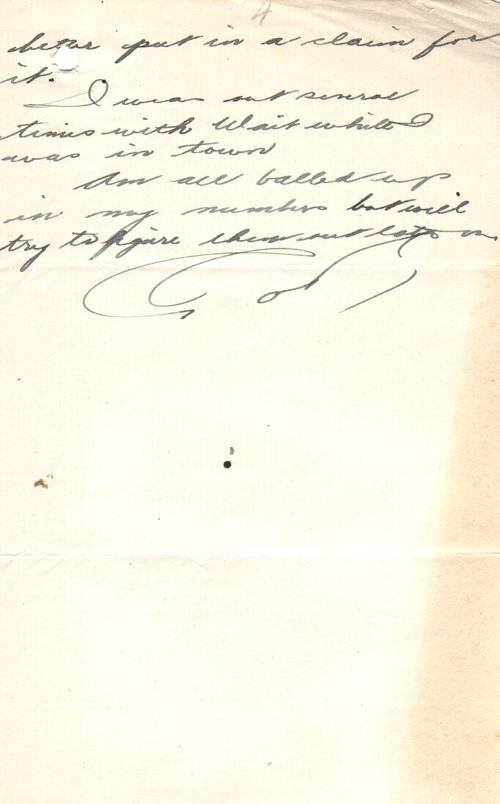 4
better put in a claim for
it.
I was out several
times with Wait while I
was in town
Am all balled up
in my numbers but will
try to figure them out later on